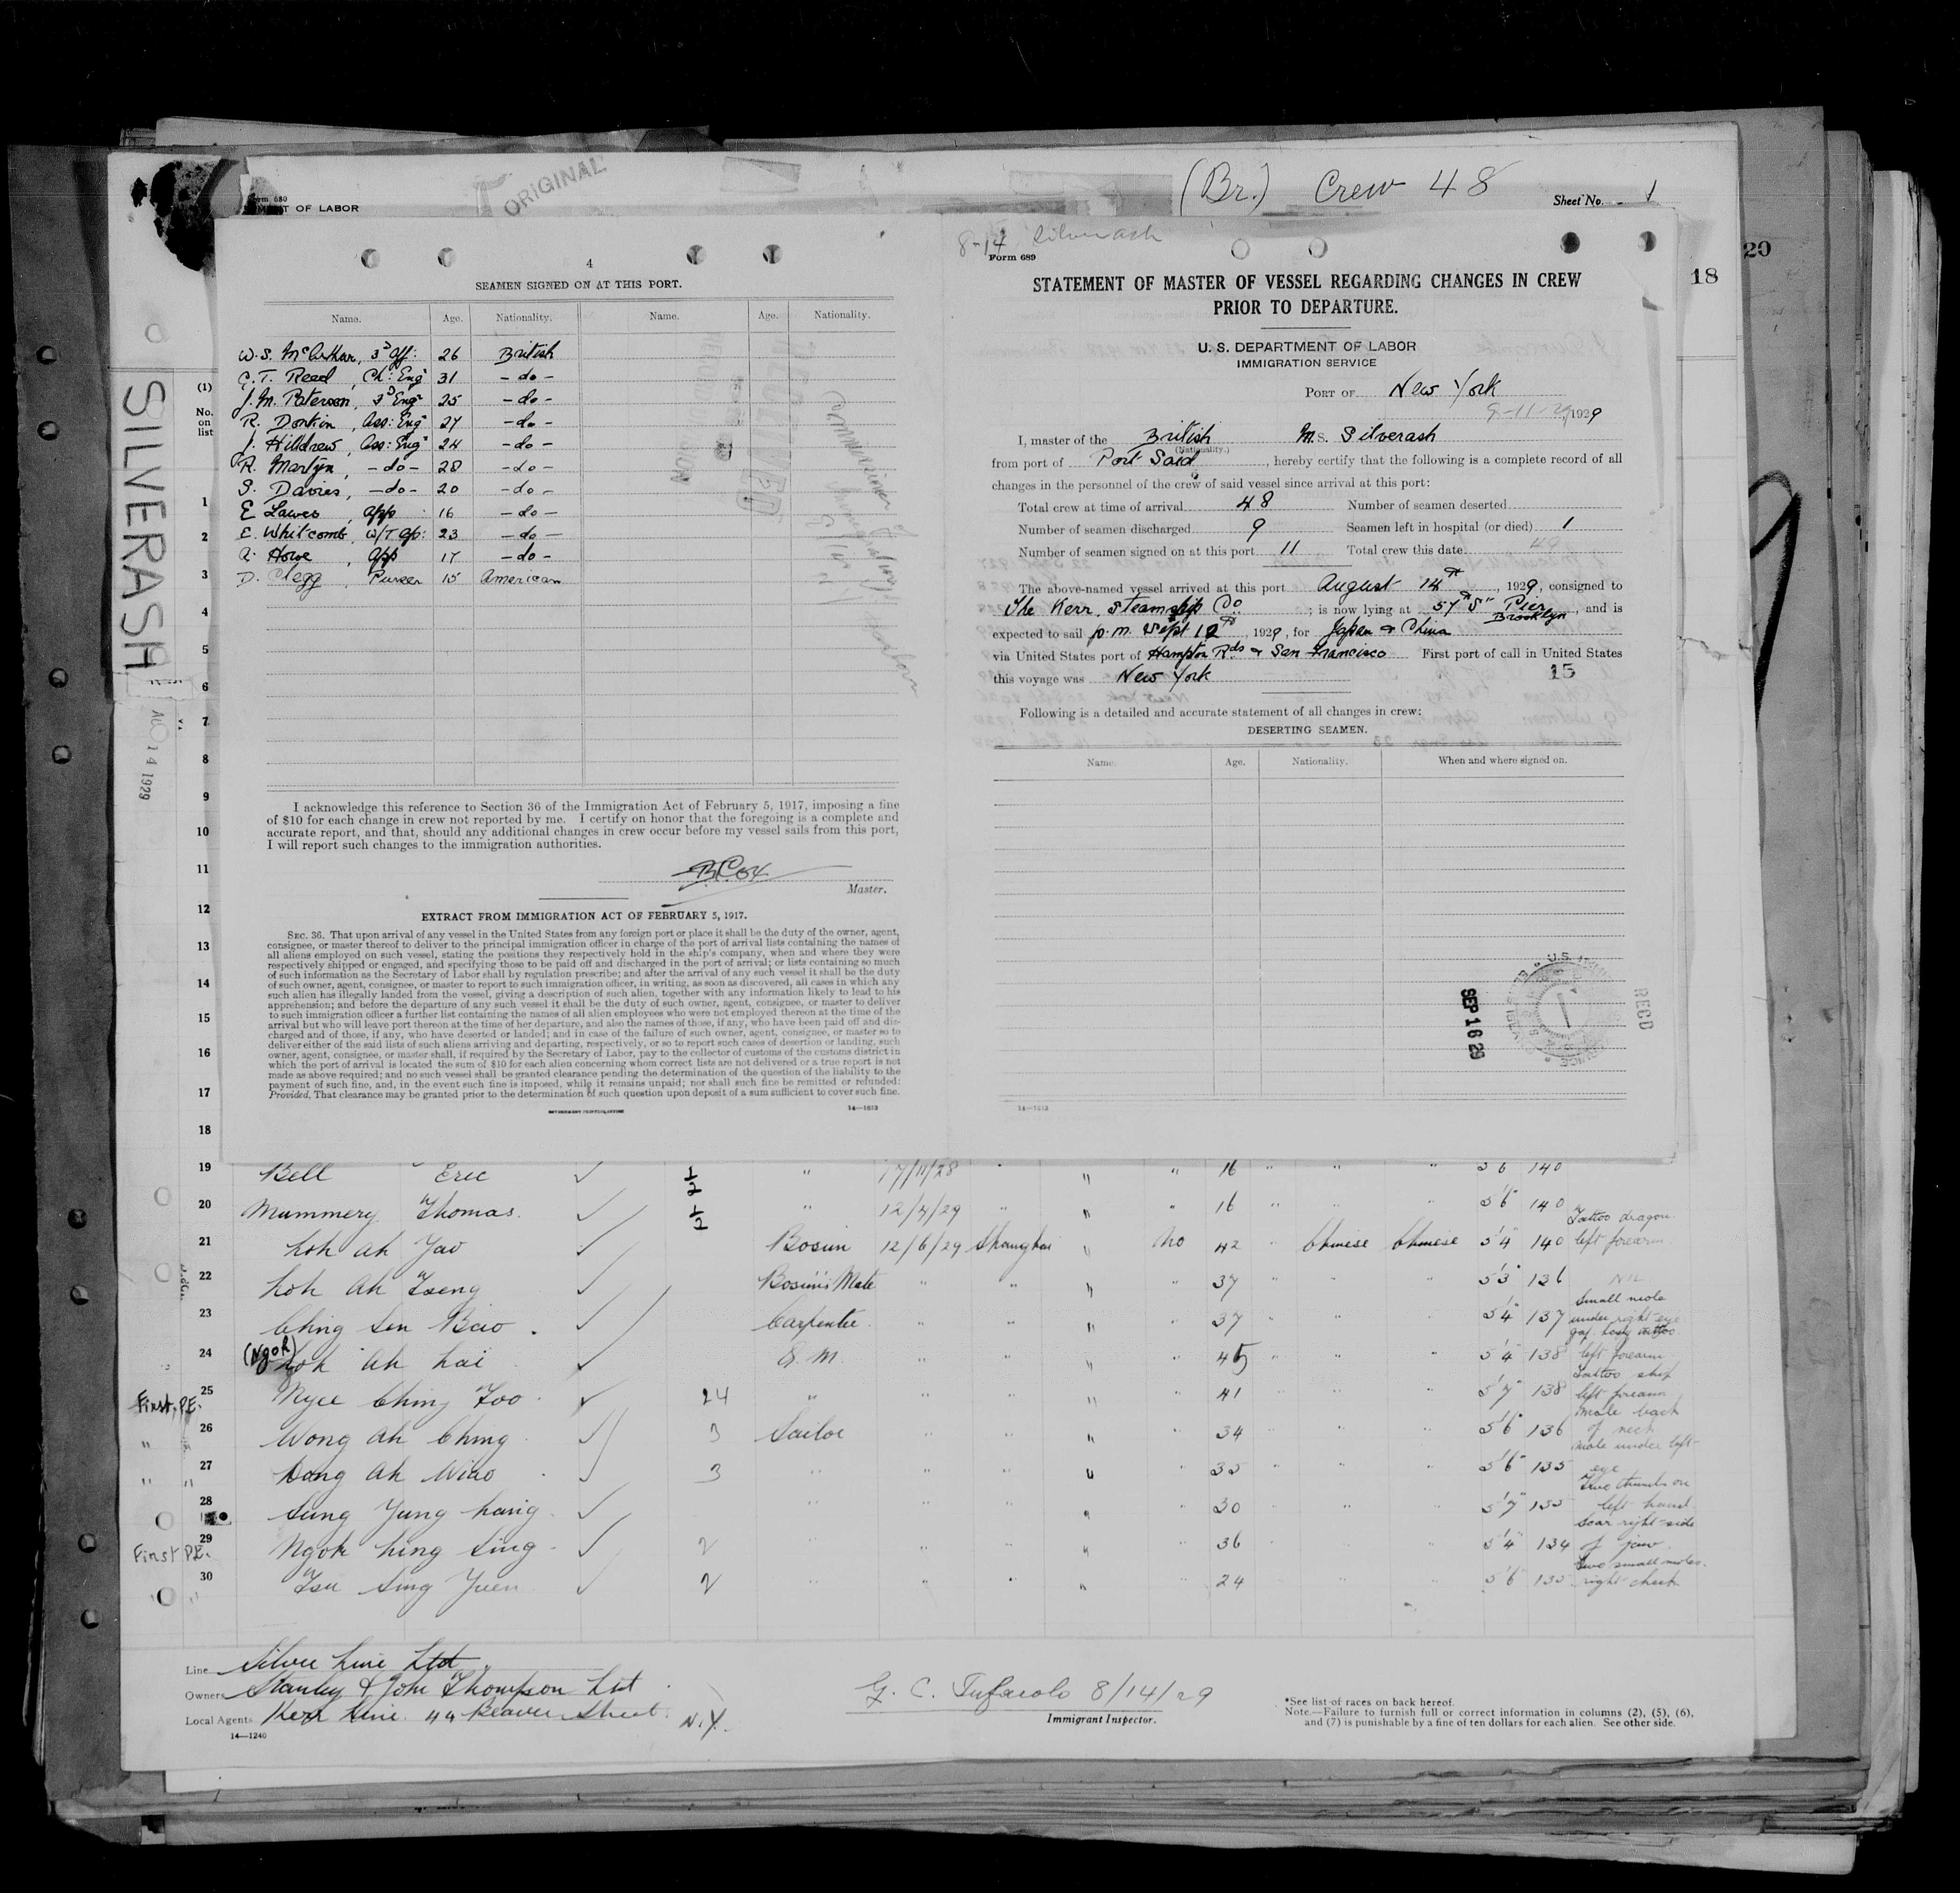 ORIGINAL
(Br.) Crew 48
Sheet No. 1
Form 680
OF LABOR
20
18
SILVERASH
AUG 14 1929
4
SEAMEN SIGNED ON AT THIS PORT.
Name. Age. Nationality. Name. Age. Nationality.
W. S. McArthur, 3d Off: 26 British
C. T. Reed, Ch: Eng 31 - do -
J. M. Paterson, 3d Engr 25 - do -
R. Donkin, Ass: Engr 27 - do -
J. Hilldrew, Ass: Engr 24 - do -
R. Martyn, - do - 28 - do -
S. Davies, - do - 20 - do -
E. Lawes, App 16 - do -
E. Whitcomb, W/T Op: 23 - do -
A. Howe, App 17 - do -
D. Clegg, Purser 15 American
I acknowledge this reference to Section 36 of the Immigration Act of February 5, 1917, imposing a fine
of $10 for each change in crew not reported by me. I certify on honor that the foregoing is a complete and
accurate report, and that, should any additional changes in crew occur before my vessel sails from this port,
I will report such changes to the immigration authorities.
B. Cox
Master.
EXTRACT FROM IMMIGRATION ACT OF FEBRUARY 5, 1917.
SEC. 36. That upon arrival of any vessel in the United States from any foreign port or place it shall be the duty of the owner, agent,
consignee, or master thereof to deliver to the principal immigration officer in charge of the port of arrival lists containing the names of
all aliens employed on such vessel, stating the positions they respectively hold in the ship's company, when and where they were
respectively shipped or engaged, and specifying those to be paid off and discharged in the port of arrival; or lists containing so much
of such information as the Secretary of Labor shall by regulation prescribe; and after the arrival of any such vessel it shall be the duty
of such owner, agent, consignee, or master to report to such immigration officer, in writing, as soon as discovered, all cases in which any
such alien has illegally landed from the vessel, giving a description of such alien, together with any information likely to lead to his
apprehension; and before the departure of any such vessel it shall be the duty of such owner, agent, consignee, or master to deliver
to such immigration officer a further list containing the names of all alien employees who were not employed thereon at the time of the
arrival but who will leave port thereon at the time of her departure, and also the names of those, if any, who have been paid off and dis-
charged and of those, if any, who have deserted or landed; and in case of the failure of such owner, agent, consignee, or master so to
deliver either of the said lists of such aliens arriving and departing, respectively, or so to report such cases of desertion or landing, such
owner, agent, consignee, or master shall, if required by the Secretary of Labor, pay to the collector of customs of the customs district in
which the port of arrival is located the sum of $10 for each alien concerning whom correct lists are not delivered or a true report is not
made as above required; and no such vessel shall be granted clearance pending the determination of the question of the liability to the
payment of such fine, and, in the event such fine is imposed, while it remains unpaid; nor shall such fine be remitted or refunded:
Provided, That clearance may be granted prior to the determination of such question upon deposit of a sum sufficient to cover such fine.
GOVERNMENT PRINTING OFFICE 14—1613
8-14 Silverash
Form 689
STATEMENT OF MASTER OF VESSEL REGARDING CHANGES IN CREW
PRIOR TO DEPARTURE.
U. S. DEPARTMENT OF LABOR
IMMIGRATION SERVICE
PORT OF New York
9-11-29, 1929
I, master of the British M.S. Silverash
(Nationality.)
from port of Port Said, hereby certify that the following is a complete record of all
changes in the personnel of the crew of said vessel since arrival at this port:
Total crew at time of arrival 48 Number of seamen deserted
Number of seamen discharged 9 Seamen left in hospital (or died) 1
Number of seamen signed on at this port 11 Total crew this date 49
The above-named vessel arrived at this port August 14th, 1929, consigned to
The Kerr Steamship Co; is now lying at 57th St Pier Brooklyn, and is
expected to sail p.m. Sept 12th, 1929, for Japan & China
via United States port of Hampton Rds & San Francisco First port of call in United States
this voyage was New York 15
Following is a detailed and accurate statement of all changes in crew:
DESERTING SEAMEN.
Name. Age. Nationality. When and where signed on.
SEP 16 29
RECD
14—1613
(1)
No.
on
list
1
2
3
4
5
6
7
8
9
10
11
12
13
14
15
16
17
18
19 Bell Eric ✓ 1/2 " 17/11/28 " " " 16 " " " 5'6 140
20 Mummery Thomas ✓ 1/2 " 12/4/29 " " 16 " " " 5'6" 140
21 Loh Ah Yao ✓ Bosun 12/6/29 Shanghai " No 42 " Chinese Chinese 5'4" 140 Tattoo dragon left forearm
22 Loh Ah Tseng ✓ Bosun's Mate " " " " 37 " 5'3" 136 Nil
23 Ching Sen Bao ✓ Carpenter " " " " 37 " 5'4" 137 Small mole under right eye
24 (Ngoh) Loh Ah Kai ✓ Q. M. " " " " 45 " " " 5'4" 138 left forearm
First P.E. 25 Nyee Ching Foo ✓ 24 " " " " " 41 " " " 5'7" 138 Tattoo ship left forearm
" 26 Wong Ah Ching ✓ 3 Sailor " " " " 34 " " " 5'6" 136 Mole back of neck
" " 27 Wong Ah Miao ✓ 3 " " " " " 35 " " " 5'6" 135 Mole under left eye
28 Sung Yung Kang ✓ " " " " " 30 " " " 5'7" 135 Two thumbs on left hand
First P.E. 29 Ngoh Ning Sing ✓ 2 " " " " " 36 " " " 5'4" 134 Scar right side of jaw
" " 30 Tsu Sing Yuen ✓ 2 " " " " " 24 " " " 5'6 135 Two small moles right cheek
Line Silver Line Ltd.
Owners Stanley & John Thompson Ltd
Local Agents Kerr Line. 44 Beaver Street. N.Y.
14—1240
G. C. Tufarolo 8/14/29
Immigrant Inspector.
*See list of races on back hereof.
Note.—Failure to furnish full or correct information in columns (2), (5), (6),
and (7) is punishable by a fine of ten dollars for each alien. See other side.